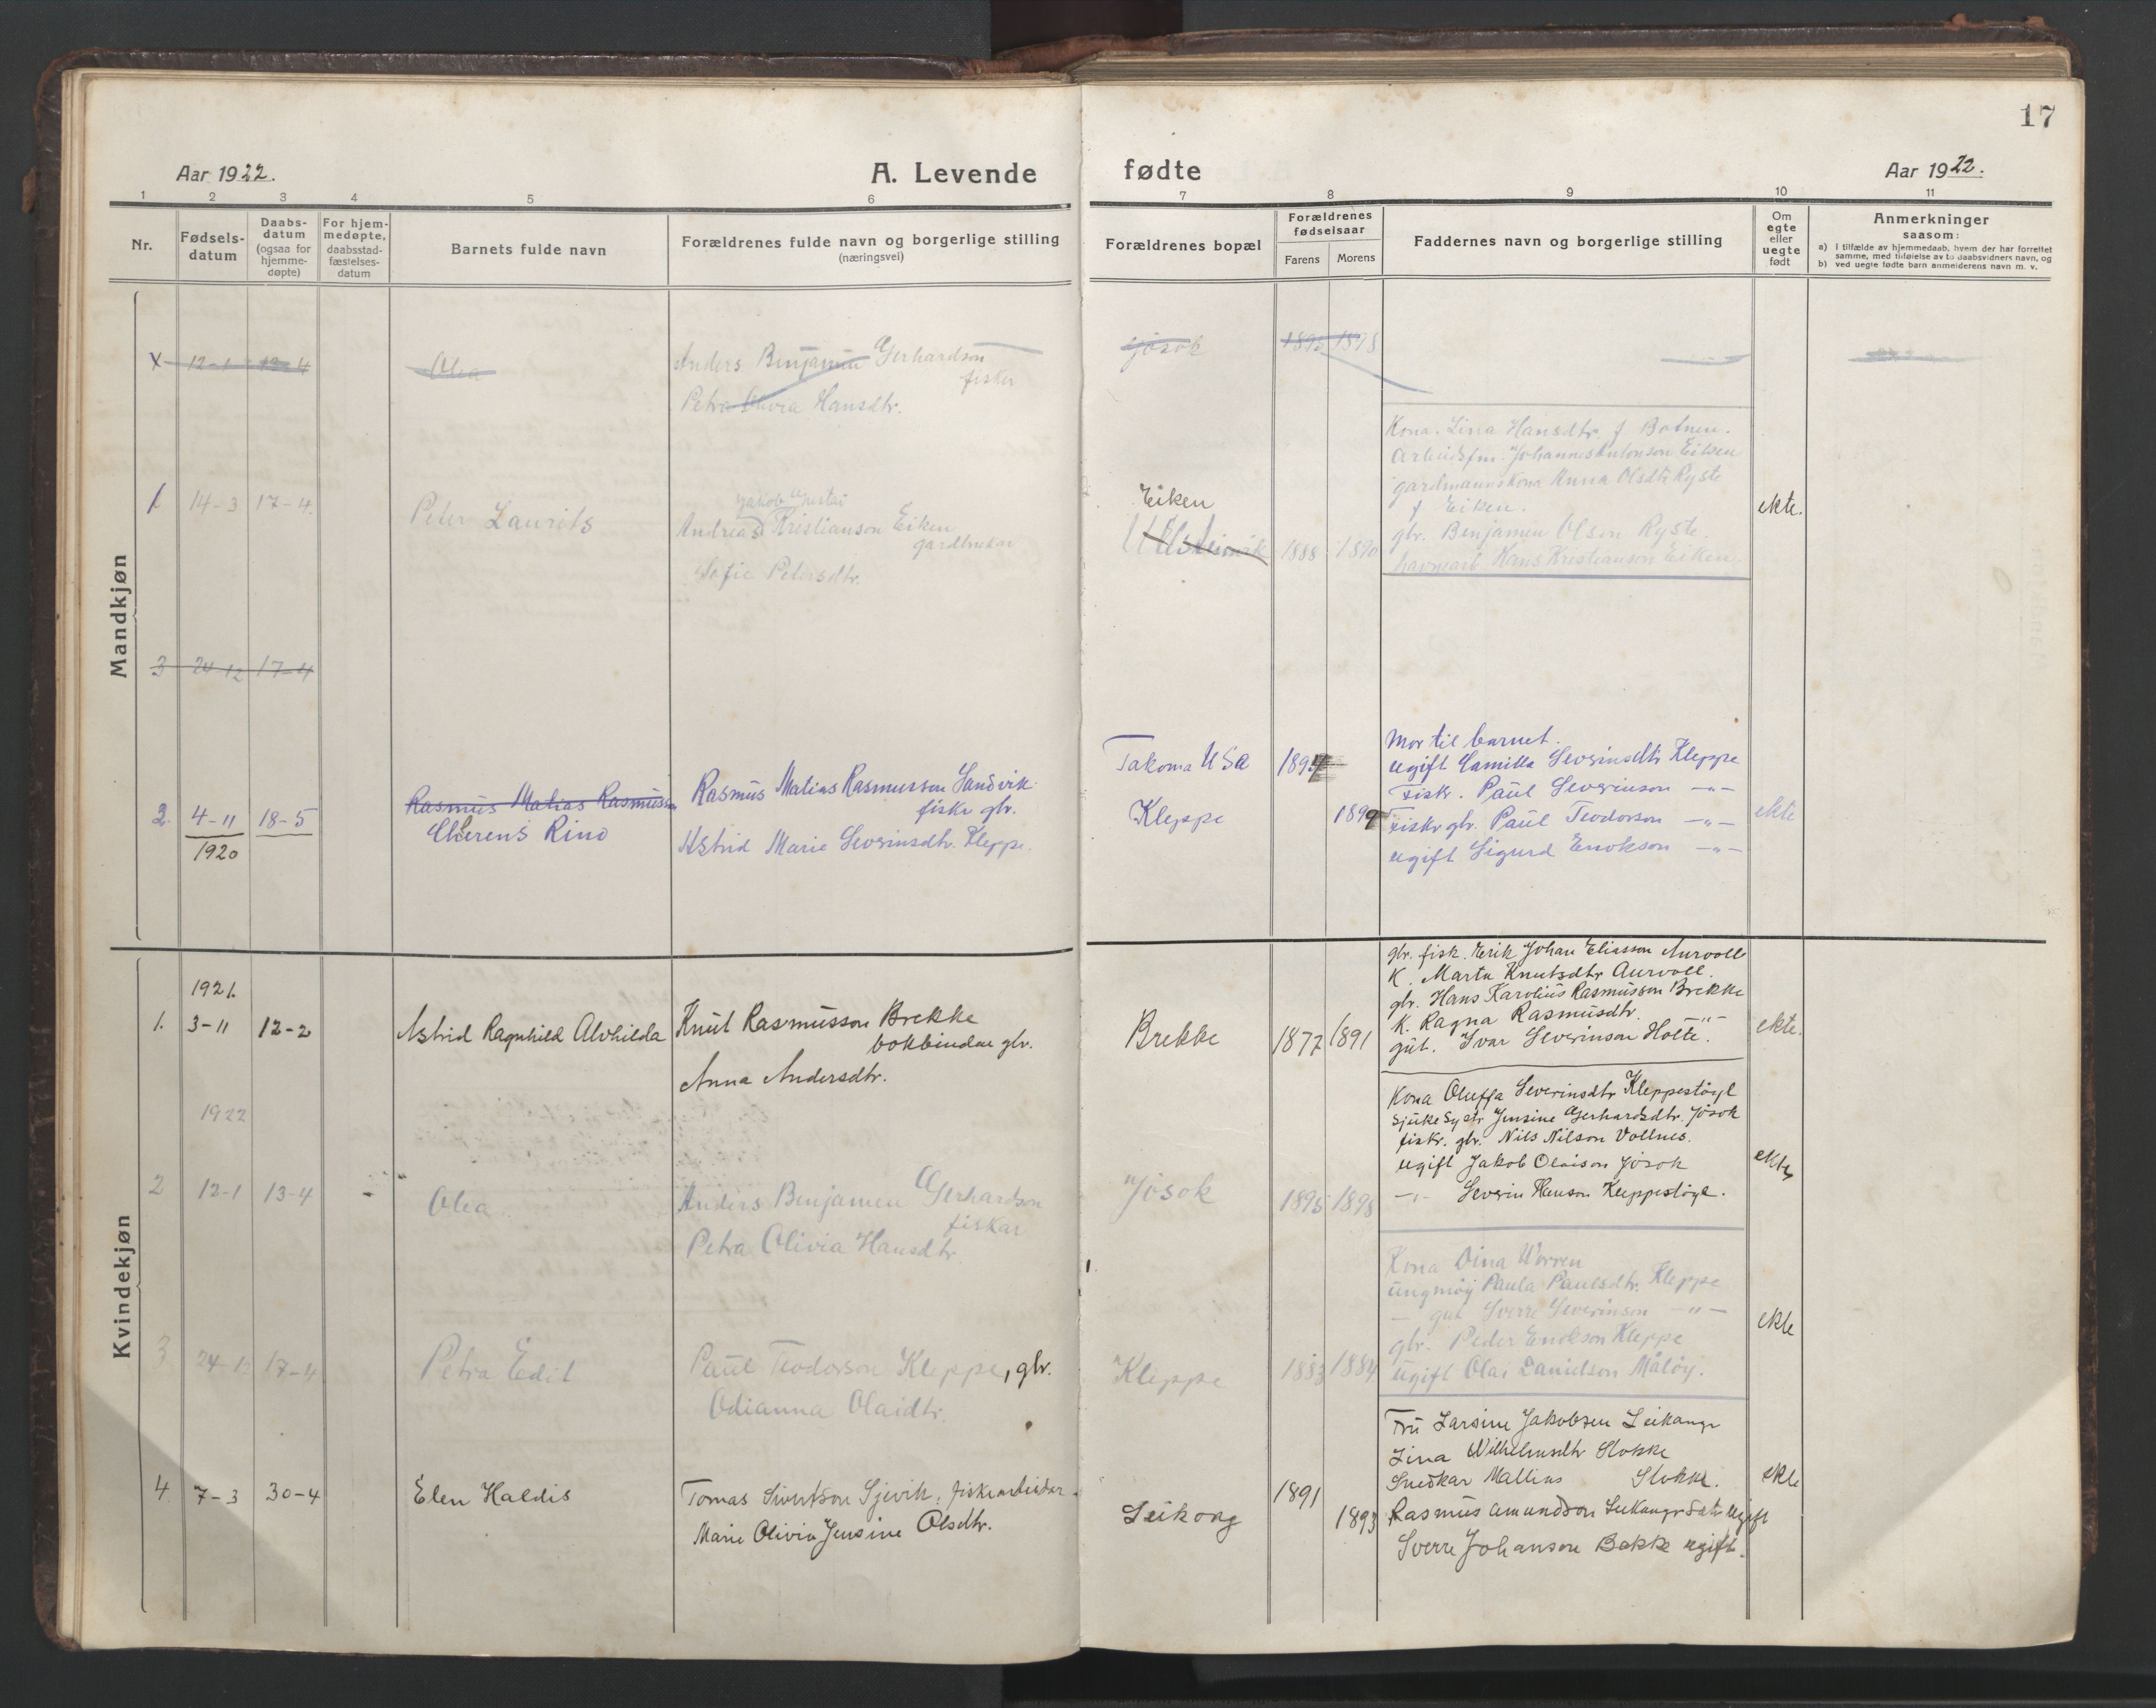 17
Aar 1922.
A. Levende fødte
Aar 1922.
1 2 3 4 5 6 7 8 9 10 11
Nr.
Fødsels-
datum
Daabs-
datum
(ogsaa for
hjemme-
døpte)
For hjem-
medøpte,
daabsstad-
fæstelses-
datum
Barnets fulde navn
Forældrenes fulde navn og borgerlige stilling
(næringsvei)
Forældrenes bopæl
Forældrenes
fødselsaar
Farens Morens
Faddernes navn og borgerlige stilling
Om
egte
eller
uegte
født
Anmerkninger
saasom:
a) i tilfælde av hjemmedaab, hvem der har forrettet
samme, med tilføielse av to daabsvidners navn, og
b) ved uegte fødte barn anmelderens navn m. v.
Mandkjøn
12-1 13-4
Olea
Anders Benjamin Gerhardson
fisker
Petra Olivia Hansdtr.
Jøsok
1895 1898
1 14-3 17-4.
Peter Laurits
Andreas Kristianson Eiken
gardbrukar
Sofie Petersdtr.
Eiken
1888 1890
Kona. Lina Hansdtr. f Botnen.
Johannes Antonson Eiken
gardmannskona Anna Olsdtr Ryste
f Eiken.
gbr. Benjamin Olson Ryste.
Hans Kristianson Eiken.
ekte.
3 24-12 17-4
2. 4-11 18-5
1920
Rasmus Matias Rasmusson
Rino
Rasmus Matias Rasmusson Sandvik
fiskr gbr.
Astrid Marie Severinsdtr. Kleppe.
Takoma USA
Kleppe
1894
1899
Mor til barnet.
ugift Camilla Severinsdtr Kleppe
Fiskr. Paul Severinson -"-
Fiskr gbr. Paul Teodorson -"-
ugift Sigurd Enokson -"-
ekte
Kvindekjøn
1921.
1. 3-11 12-2
Astrid Ragnhild Alvhilda
Knut Rasmusson Brekke
bokbindar gbr.
Anna Andersdtr.
Brekke
1877 1891
gbr. fisk. Eerik Johan Eliasson Aurvoll
K. Marta Knutsdtr Aurvoll.
gbr. Hans Karolius Rasmusson Brekke
K. Ragna Rasmusdtr. -"-
gut. Ivar Severinson Holte.
ekte.
1922
2 12-1 13-4
Olea
Anders Benjamin Gerhardson
fiskar
Petra Olivia Hansdtr.
Jøsok
1895 1898
Kona Oluffa Severinsdtr Kleppestøyl
Sjukesystr Jensine Gerhardsdtr. Jøsok
fiskr. gbr. Nils Nilson Vollnes.
ugift Jakob Olaison Jøsok
-"- Severin Hanson Kleppestøyl.
ekte
3 24-12 17-4
Petra Edit
Paul Teodorson Kleppe, gbr.
Odianna Olaidtr.
Kleppe
1883 1884
Kona Dina Worren
ungmøy Paula Paulsdtr. Kleppe
- gut Sverre Severinson -"-
gbr. Peder Enokson Kleppe
ugift Olai Danielson Måløy.
ekte
4. 7-3 30-4
Elen Haldis
Tomas Sivertson Sjevik, fiskearbeidar.
Marie Olivia Jensine Olsdtr.
Leikong
1891
1893
Fru Larsine Jakobsen Leikangr
Lina Vilhelmsdtr Stokke
Snedkar Mallius Stokke.
Rasmus Amundson Leikangr Sætr ugift
Sverre Johanson Bakke ugift.
ekte